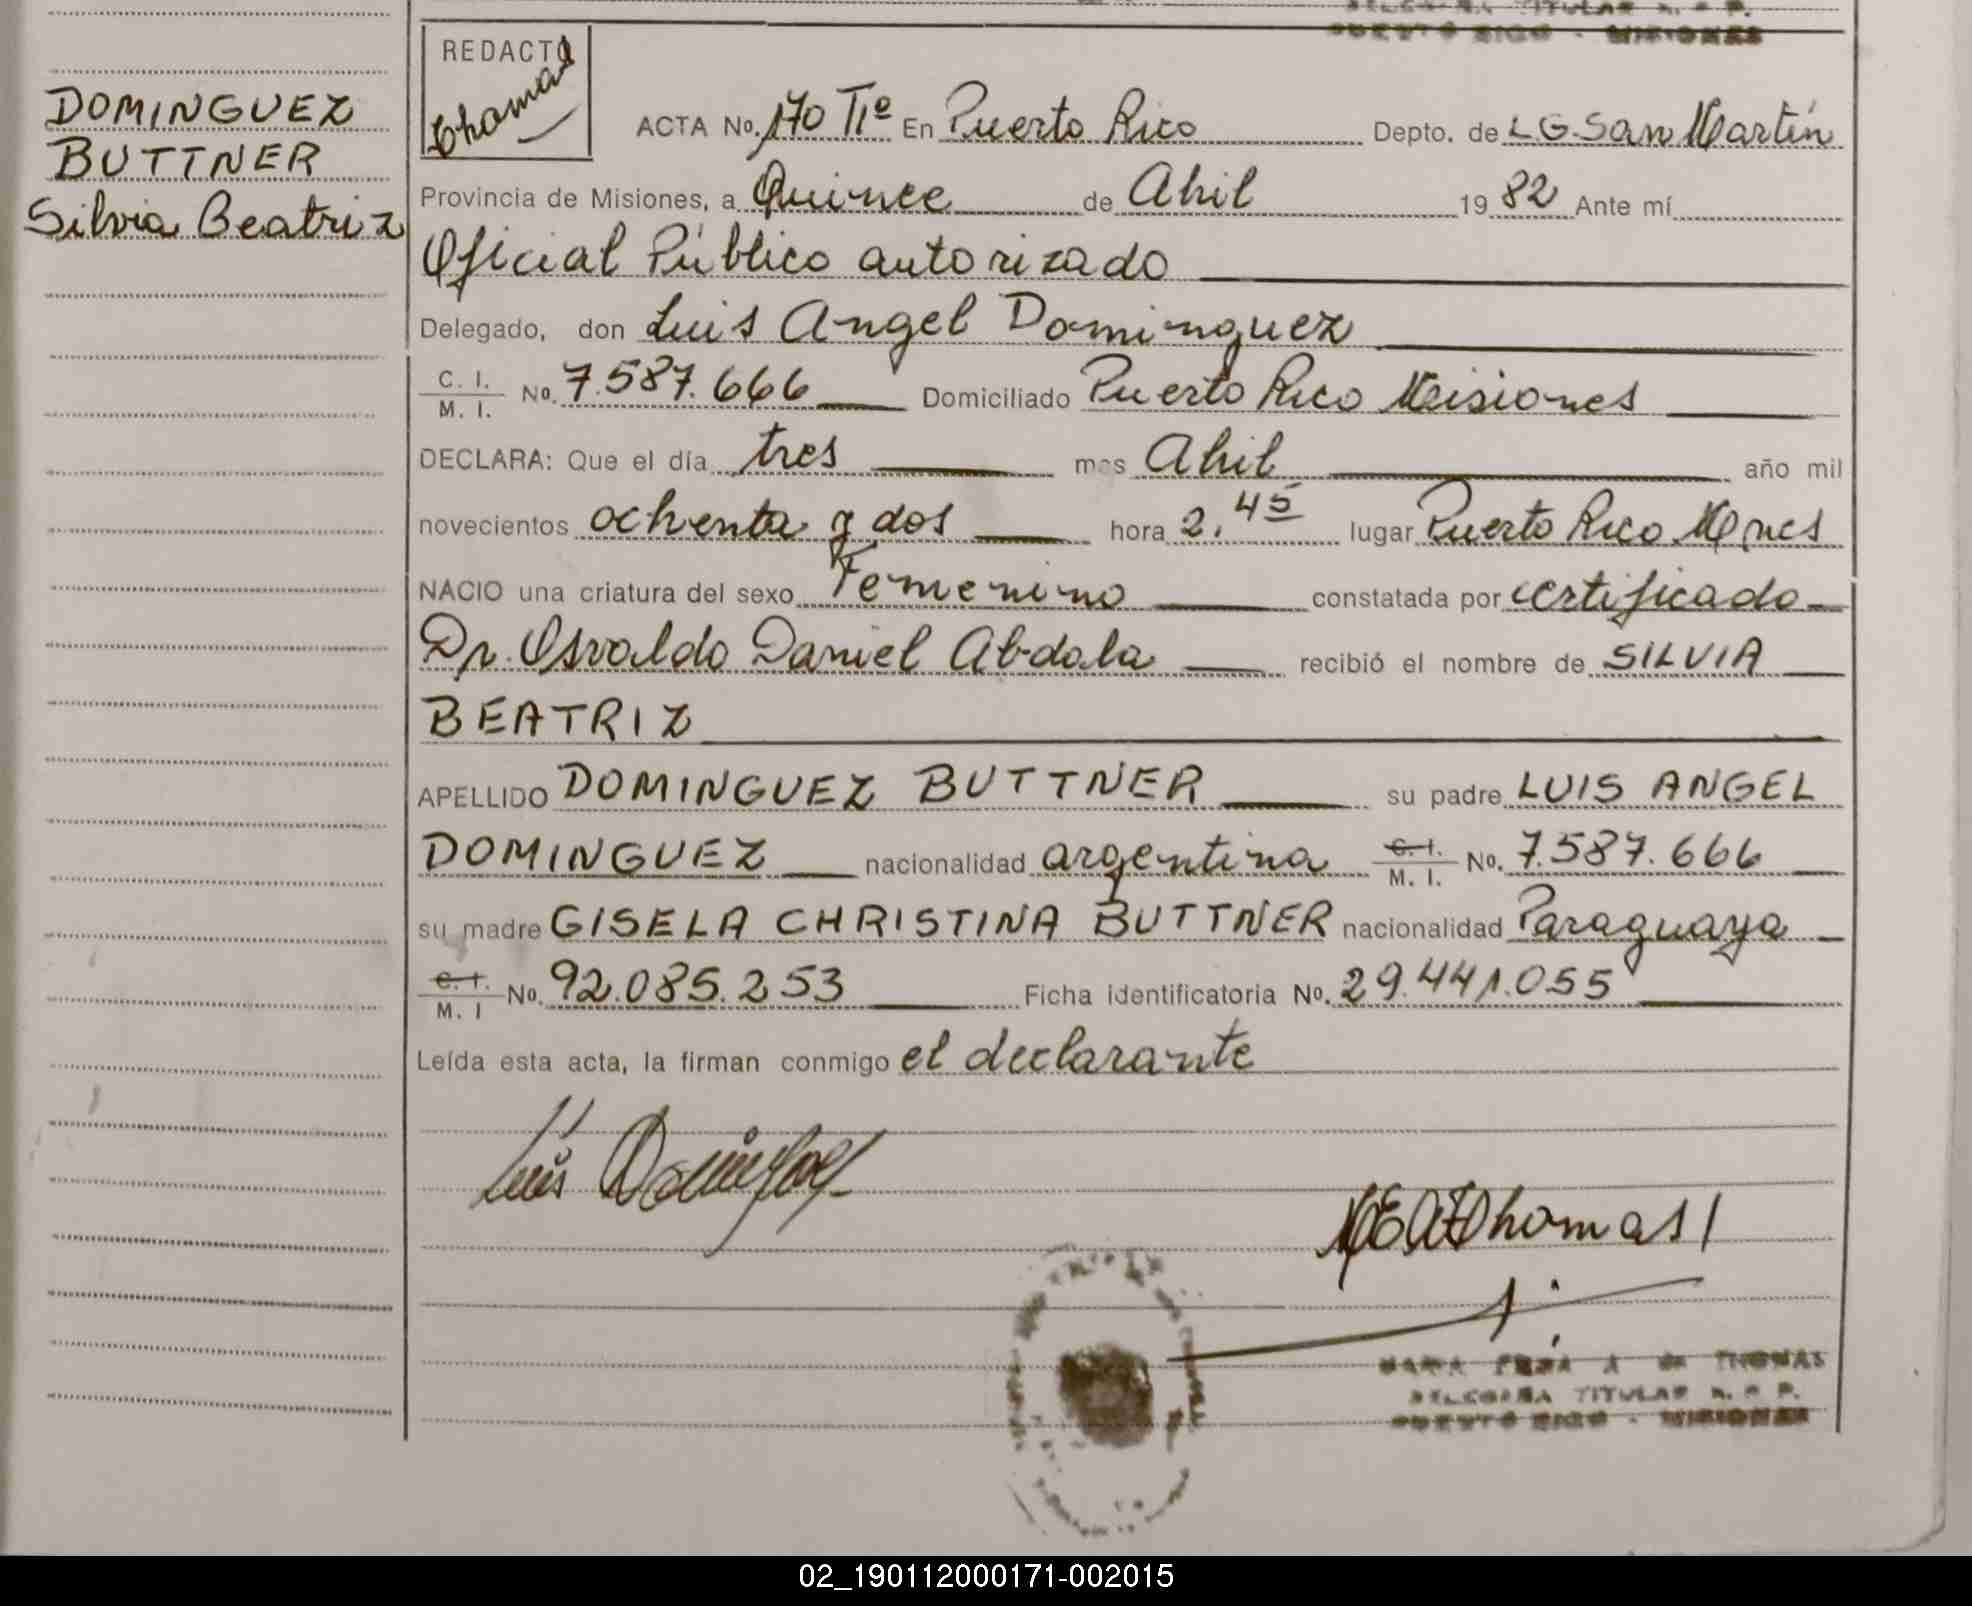 PUERTO RICO - MISIONES
DOMINGUEZ
BUTTNER
Silvia Beatriz
REDACTO
Thomas
ACTA No. 170 TIº En Puerto Rico Depto. de L.G. San Martín
Provincia de Misiones, a Quince de Abril 1982 Ante mí
Oficial Público autorizado
Delegado, don Luis Angel Dominguez
C. I. / M. I. No. 7.587.666 Domiciliado Puerto Rico Misiones
DECLARA: Que el día tres mes Abril año mil
novecientos ochenta y dos hora 2,45 lugar Puerto Rico Mnes
NACIO una criatura del sexo Femenino constatada por certificado
Dr. Osvaldo Daniel Abdala recibió el nombre de SILVIA
BEATRIZ
APELLIDO DOMINGUEZ BUTTNER su padre LUIS ANGEL
DOMINGUEZ nacionalidad argentina C. I. / M. I. No. 7.587.666
su madre GISELA CHRISTINA BUTTNER nacionalidad Paraguaya
C. I. / M. I No. 92.085.253 Ficha identificatoria No. 29.441.055
Leída esta acta, la firman conmigo el declarante
Luis Dominguez
Thomas
THOMAS
DELEGADA TITULAR R. P.
PUERTO RICO - MISIONES
02_190112000171-002015